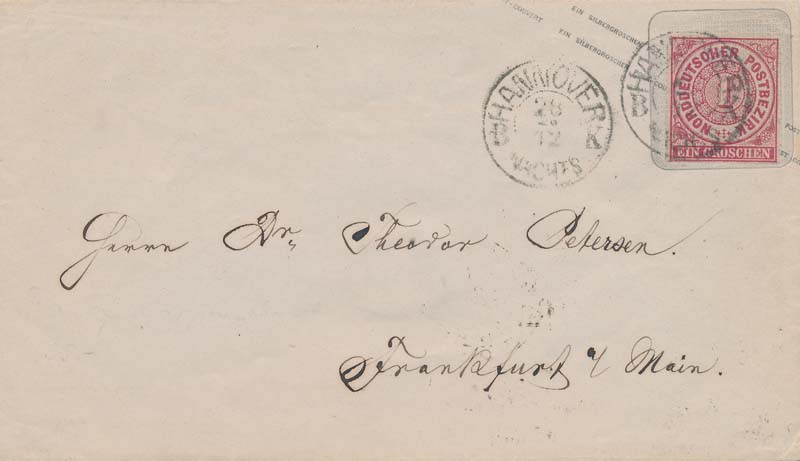 EIN SILBERGROSCHEN
EIN SILBERGROSCHEN
NORDDEUTSCHER POSTBEZIRK
1
EIN GROSCHEN
HANNOVER
28
12
B K
NACHTS
Herrn Dr. Theodor Petersen.
Frankfurt a/ Main.